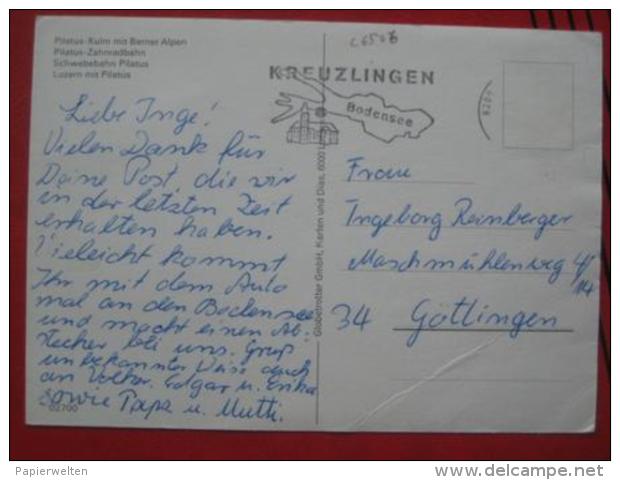 Pilatus-Kulm mit Berner Alpen
Pilatus-Zahnradbahn
Schwebebahn Pilatus
Luzern mit Pilatus
Liebe Inge!
Vielen Dank für
Deine Post, die wir
in der letzten Zeit
erhalten haben.
Vieleicht kommt
Ihr mit dem Auto
mal an den Bodensee
und macht einen Ab-
stecher bei uns. Gruß
unbekannter Weise auch
an Volker, Edgar u. Erika
sowie Papa u. Mutti.
02700
Globetrotter GmbH, Karten und Dias, 6002
KREUZLINGEN
Bodensee
8280
Frau
Ingeborg Reinberger
Maschmühlenweg 4/
114
34 Göttingen
Papierwelten
www.delcampe.net